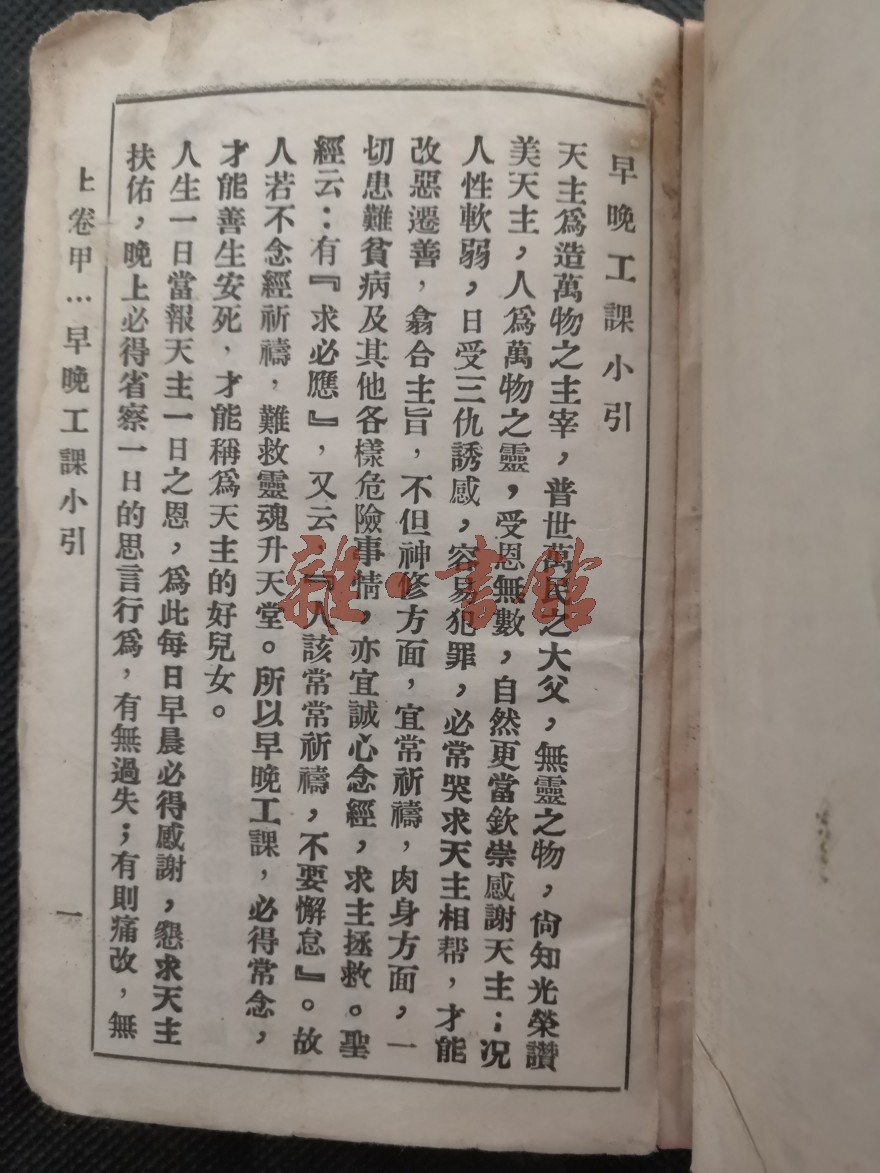 早晚工課小引
天主爲造萬物之主宰，普世萬民之大父，無靈之物，尙知光榮讚
美天主，人爲萬物之靈，受恩無數，自然更當欽崇感謝天主；况
人性軟弱，日受三仇誘感，容易犯罪，必常哭求天主相帮，才能
改惡遷善，翕合主旨，不但神修方面，宜常祈禱，肉身方面，一
切患難貧病及其他各樣危險事情，亦宜誠心念經，求主拯救。聖
經云：有『求必應』，又云，『人該常常祈禱，不要懈怠』。故
人若不念經祈禱，難救靈魂升天堂。所以早晚工課，必得常念，
才能善生安死，才能稱爲天主的好兒女。
人生一日當報天主一日之恩，爲此每日早晨必得感謝，懇求天主
扶佑，晚上必得省察一日的思言行爲，有無過失；有則痛改，無
上卷甲…早晚工課小引
一
雜·書館